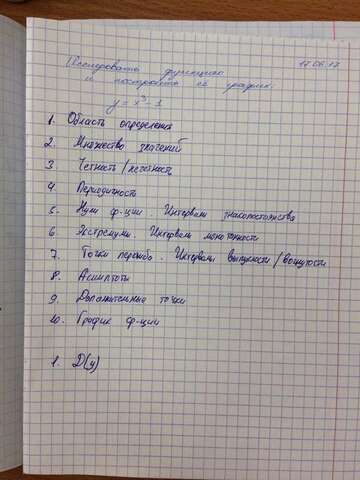 Исследовать функцию 17.06.17
и построить её график:
y = x³ - 1
1. Область определения
2. Множество значений
3 Четность/нечетность
4 Периодичность
5. Нули ф-ции. Интервалы знакопостоянства
6 Экстремумы. Интервалы монотонности
7. Точки перегиба. Интервалы выпуклости/вогнутости
8. Асимптоты
9. Дополнительные точки
10. График ф-ции
1. D(y)